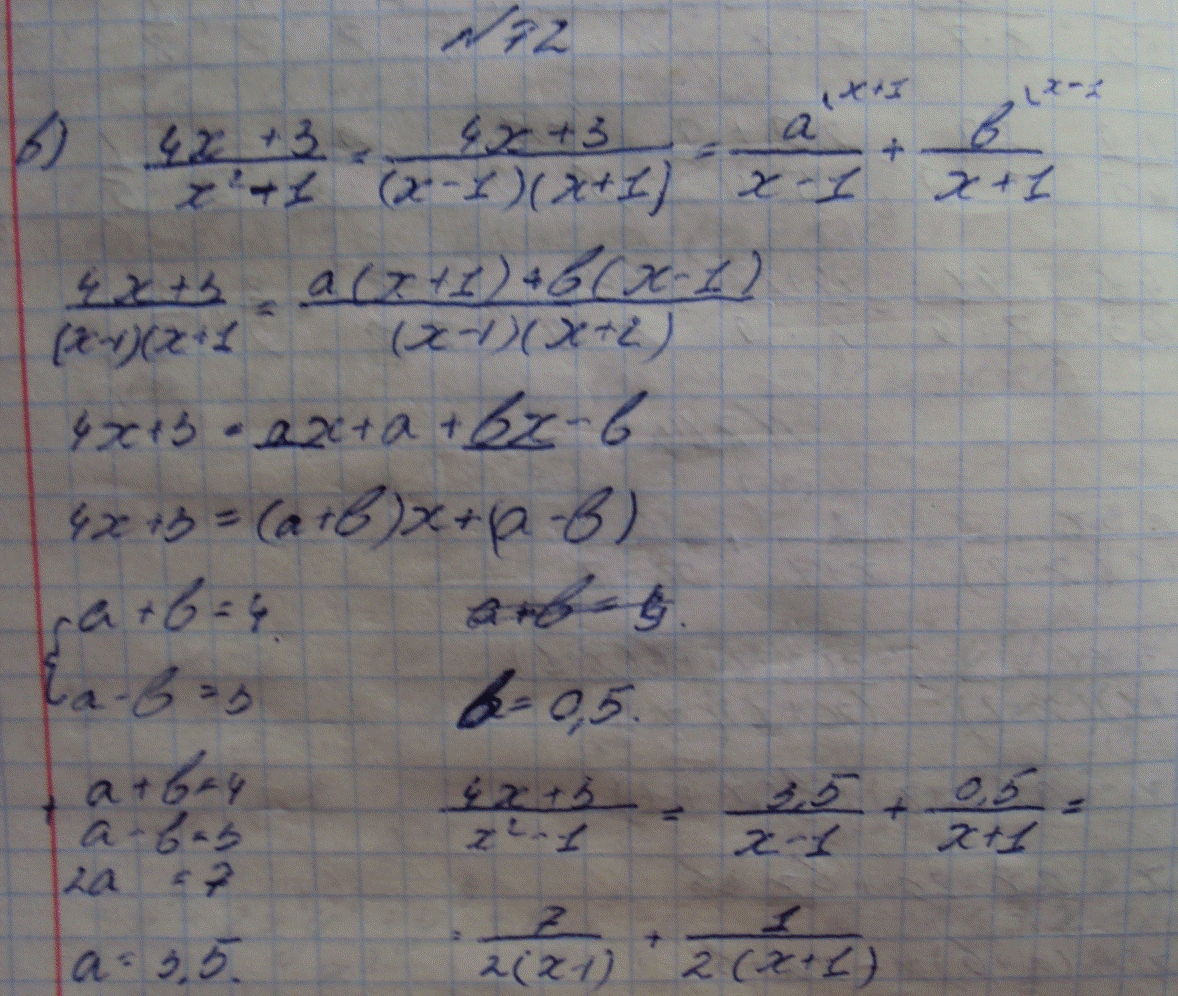 №72
в) (4x + 3)/(x² + 1) = (4x + 3)/((x-1)(x+1)) = a^(x+1)/(x-1) + в^(x-1)/(x+1)
(4x+3)/((x-1)(x+1) = (a(x+1)+в(x-1))/((x-1)(x+2))
4x+3 = ax+a+вx-в
4x+3=(a+в)x+(a-в)
{a+в=4. a+в=4.
a-в=3 в=0,5.
+ a+в=4
a-в=3
2a =7
a=3,5.
(4x+3)/(x²-1) = 3,5/(x-1) + 0,5/(x+1) =
= 7/(2(x-1) + 1/(2(x+1))